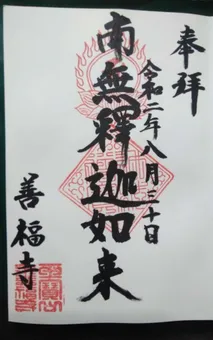 奉拝
令和二年八月三十日
南無釋迦如来
善福寺